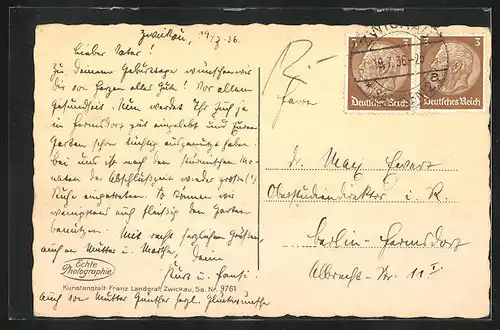 Zwickau, 19/7.36.
Lieber Vater!
Zu deinem Geburtstage wünschen wir
dir von Herzen alles Gute! Vor allem
Gesundheit. Nun werdet Ihr Euch ja
in Hermsdorf gut eingelebt und Euren
Garten schon tüchtig ausgenutzt haben.
Bei uns ist nach den stürmischen Mo-
naten der Abschlußzeit wieder große(!)
Ruhe eingetreten. So können wir
wenigstens auch fleißig den Garten
benützen. Mit recht herzlichen Grüßen,
auch an Mutter und
Kurt und
Auch von Mutter Günther herzl. Glückwünsche
Echte
Photographie
Kunstanstalt Franz Landgraf, Zwickau, Sa. Nr. 9761
Herrn
Dr. Max
Oberstudiendirektor i. R.
Berlin-Hermsdorf
Albrecht-Str. 11 I
3
Deutsches Reich
3
Deutsches Reich
ZWICKAU